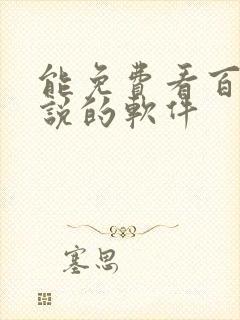 能免費看百
說的軟件
塞思